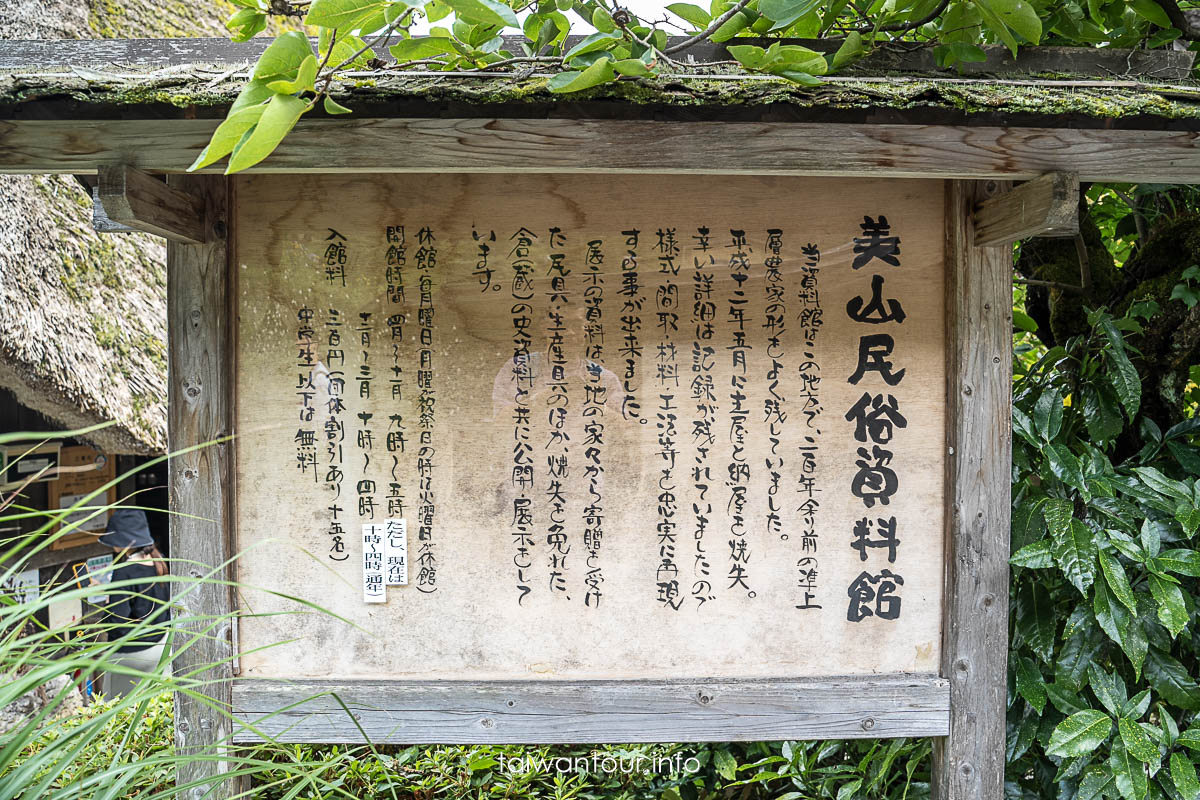 美山民俗資料館
当資料館は、この地方で、二百年余り前の準上
層農家の形をよく残していました。
平成十二年五月に主屋と納屋を焼失。
幸い詳細は記録が残されていましたので
様式・間取・材料・工法等を忠実に再現
する事が出来ました。
展示の資料は、当地の家々から寄贈を受け
た民具・生産具のほか、焼失を免れた、
倉(蔵)の史資料と共に公開・展示をして
います。
休館 毎月曜日(月曜が祝祭日の時は火曜日が休館)
開館時間 四月〜十一月 九時〜五時
ただし、現在は
十二月〜三月 十時〜四時
十時〜四時(通年)
入館料 三百円(団体割引あり十五名)
中学生以下は無料
taiwantour.info